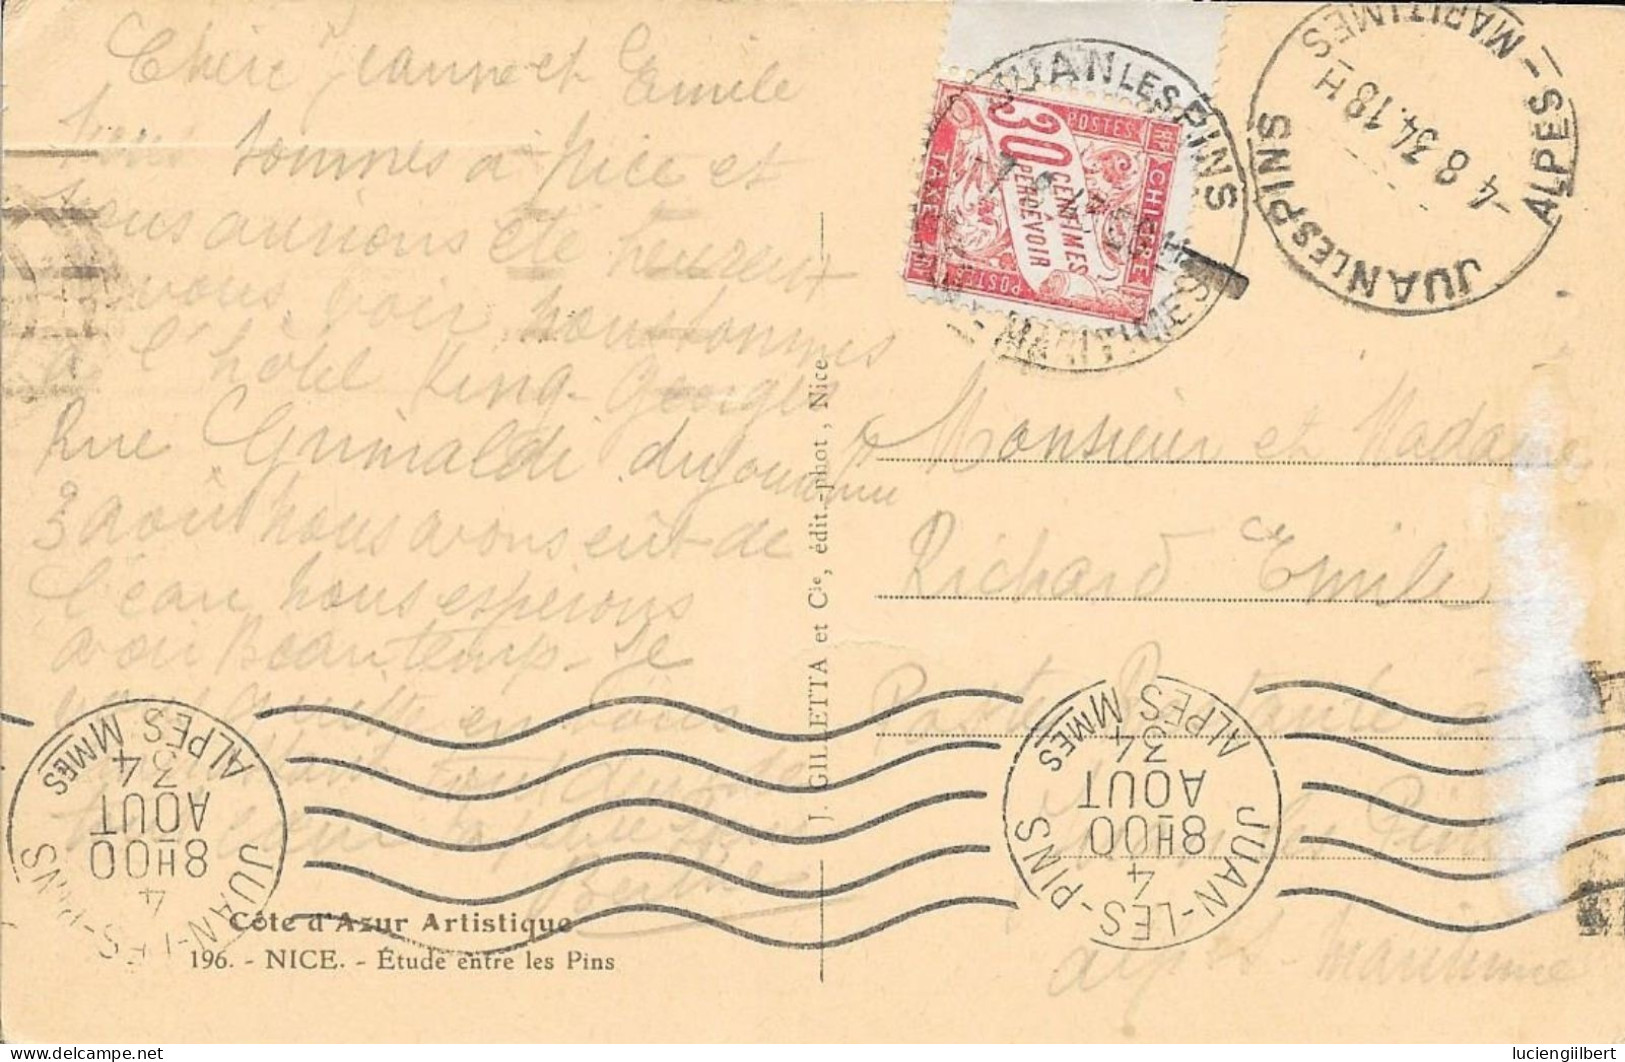 Chère Jeanne et Emile
nous sommes à nice et
nous aurions été heureux
vous voir nous sommes
à l'hôtel King-Georges
Rue Grimaldi
3 août nous avons eut de
l'eau nous espérons
avoir Beau temps Je
vous quitte en
Berthe
Côte d'Azur Artistique
196. - NICE. - Étude entre les Pins
J. GILLETTA et Cie, édit.-phot., Nice
CHIFFRE
TAXE
POSTES
30
CENTIMES
PERCEVOIR
JUAN LES PINS
MARITIMES
JUAN LES PINS
ALPES-MARITIMES
-4 8 34.18 H
Monsieur et Madame
Richard Emile
Poste Restante à
Juan les Pins
alpes maritime
JUAN-LES-PINS
ALPES MMES
4
8H00
AOUT
34
JUAN-LES-PINS
ALPES MMES
4
8H00
AOUT
34
luciengilbert